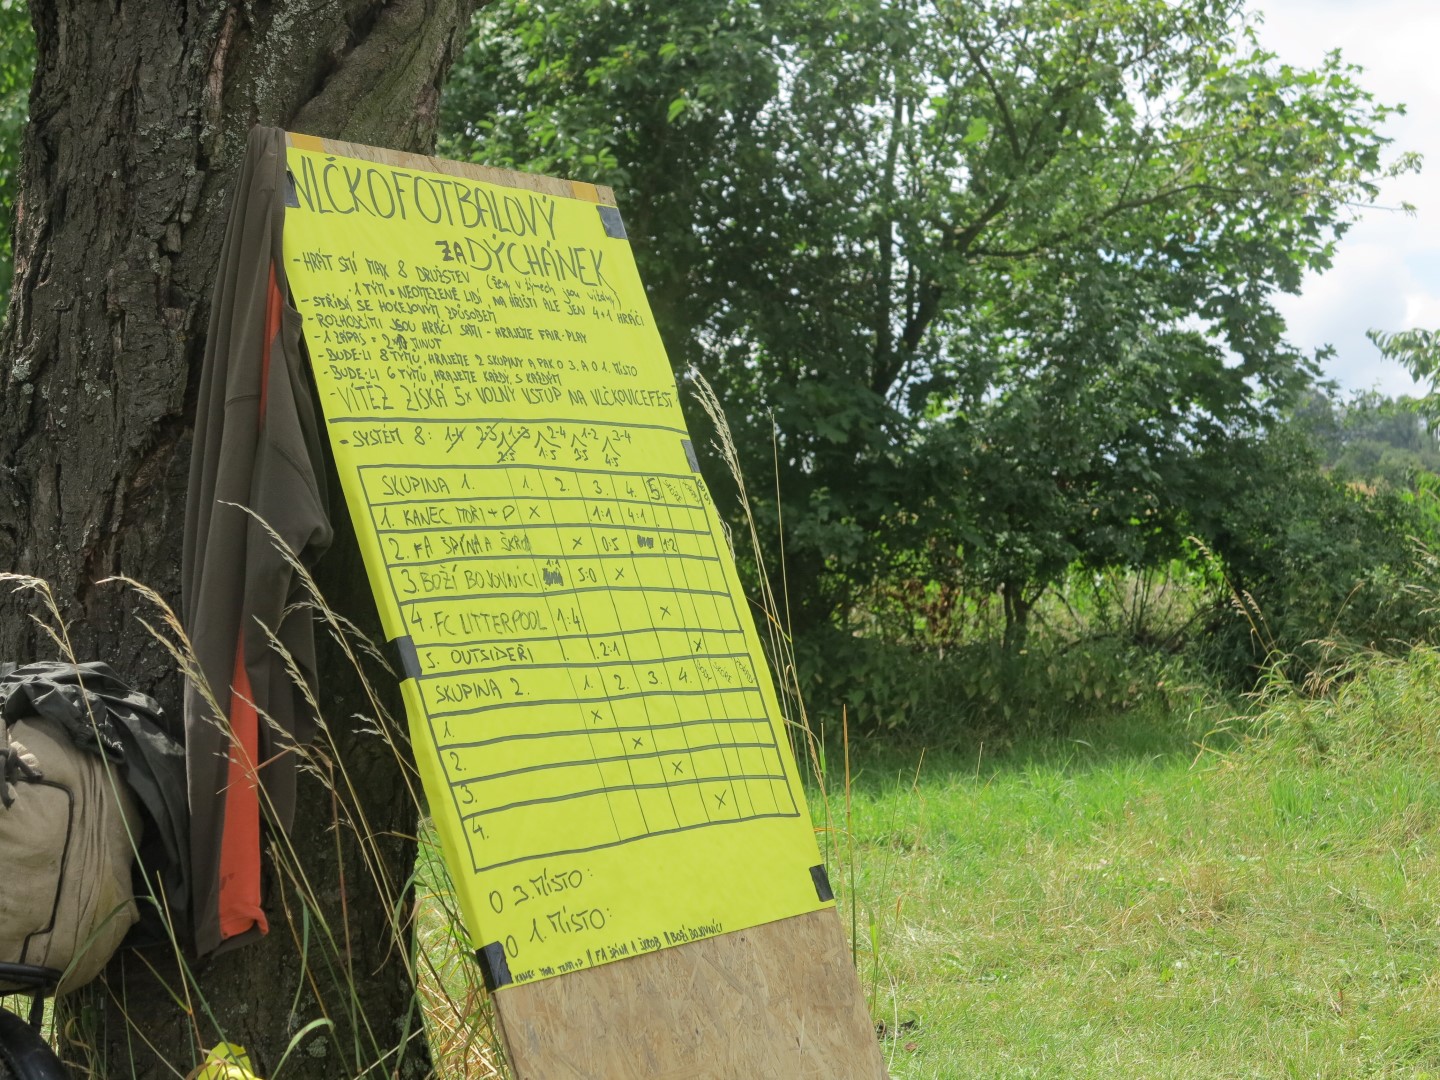 VLČKOFOTBALOVÝ
ZADÝCHÁNEK
- HRÁT SMÍ MAX 8 DRUŽSTEV (ženy v týmech jsou vítány)
1 TÝM = NEOMEZENĚ LIDÍ, NA HŘIŠTI ALE JEN 4+1 HRÁČI
- STŘÍDÁ SE HOKEJOVÝM ZPŮSOBEM
- ROZHODČÍMI JSOU HRÁČI SAMI - HRAJETE FAIR-PLAY
- 1 ZÁPAS = MINUT
- BUDE-LI 8 TÝMŮ, HRAJETE 2 SKUPINY A PAK O 3. A O 1. MÍSTO
- BUDE-LI 6 TÝMŮ, HRAJETE KAŽDÝ S KAŽDÝM
- VÍTĚZ ZÍSKÁ 5x VOLNÝ VSTUP NA VLČKOVICEFEST
- SYSTÉM 8: 1-4 2-3 1-3 2-4 1-2 3-4
2-5 1-5 3-5 4-5
SKUPINA 1. 1. 2. 3. 4. 5.
1. KANEC MOŘI + P X 1:1 4:1
2. FA ŠPÍNA A ŠKROB X 0:5 1:2
3. BOŽÍ BOJOVNÍCI 1:1 5:0 X
4. FC LITTERPOOL 1:4 X
5. OUTSIDEŘI 2:1 X
SKUPINA 2. 1. 2. 3. 4.
1. X
2. X
3. X
4. X
O 3. MÍSTO:
O 1. MÍSTO:
FA ŠPÍNA A ŠKROB BOŽÍ BOJOVNÍCI